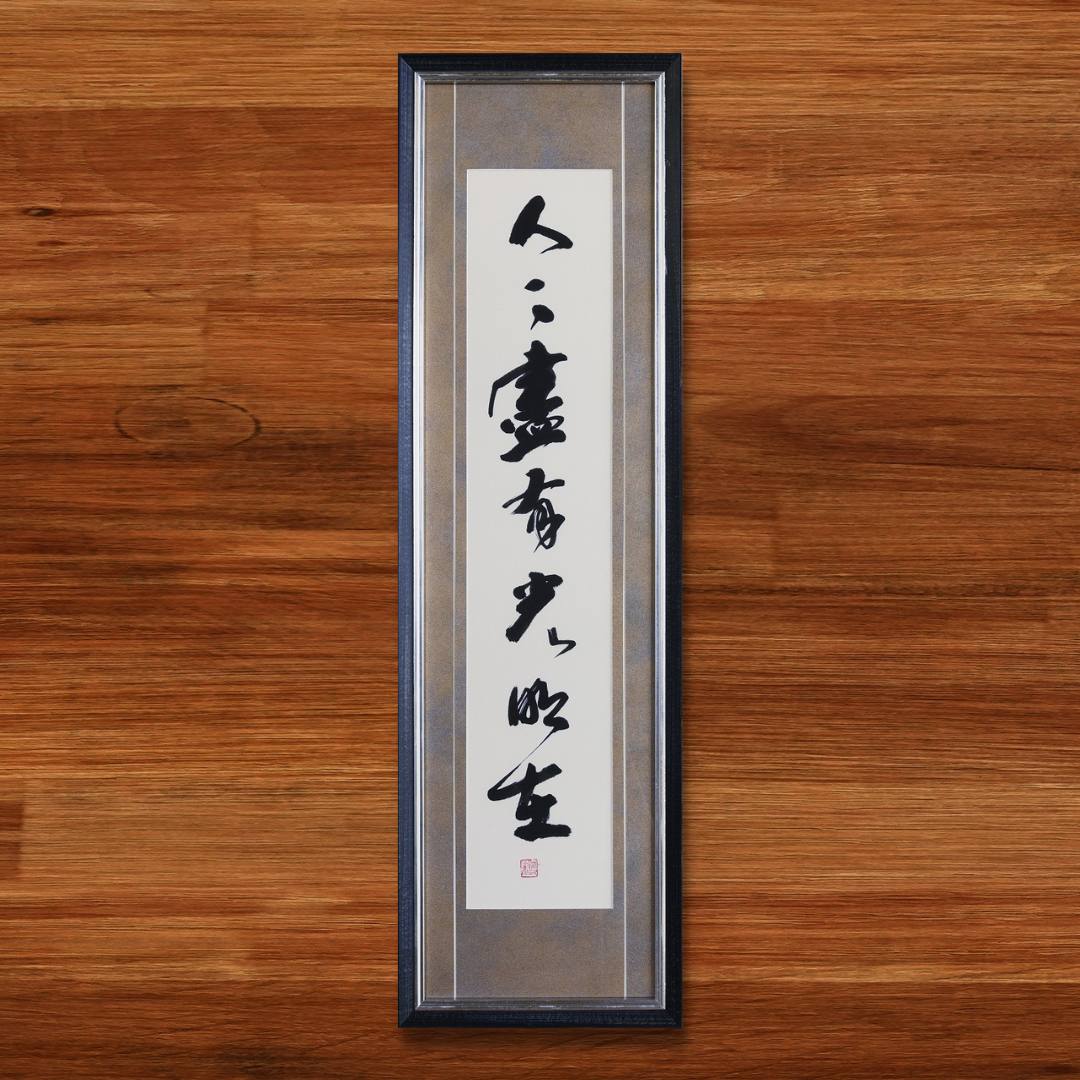 人々盡有光明在